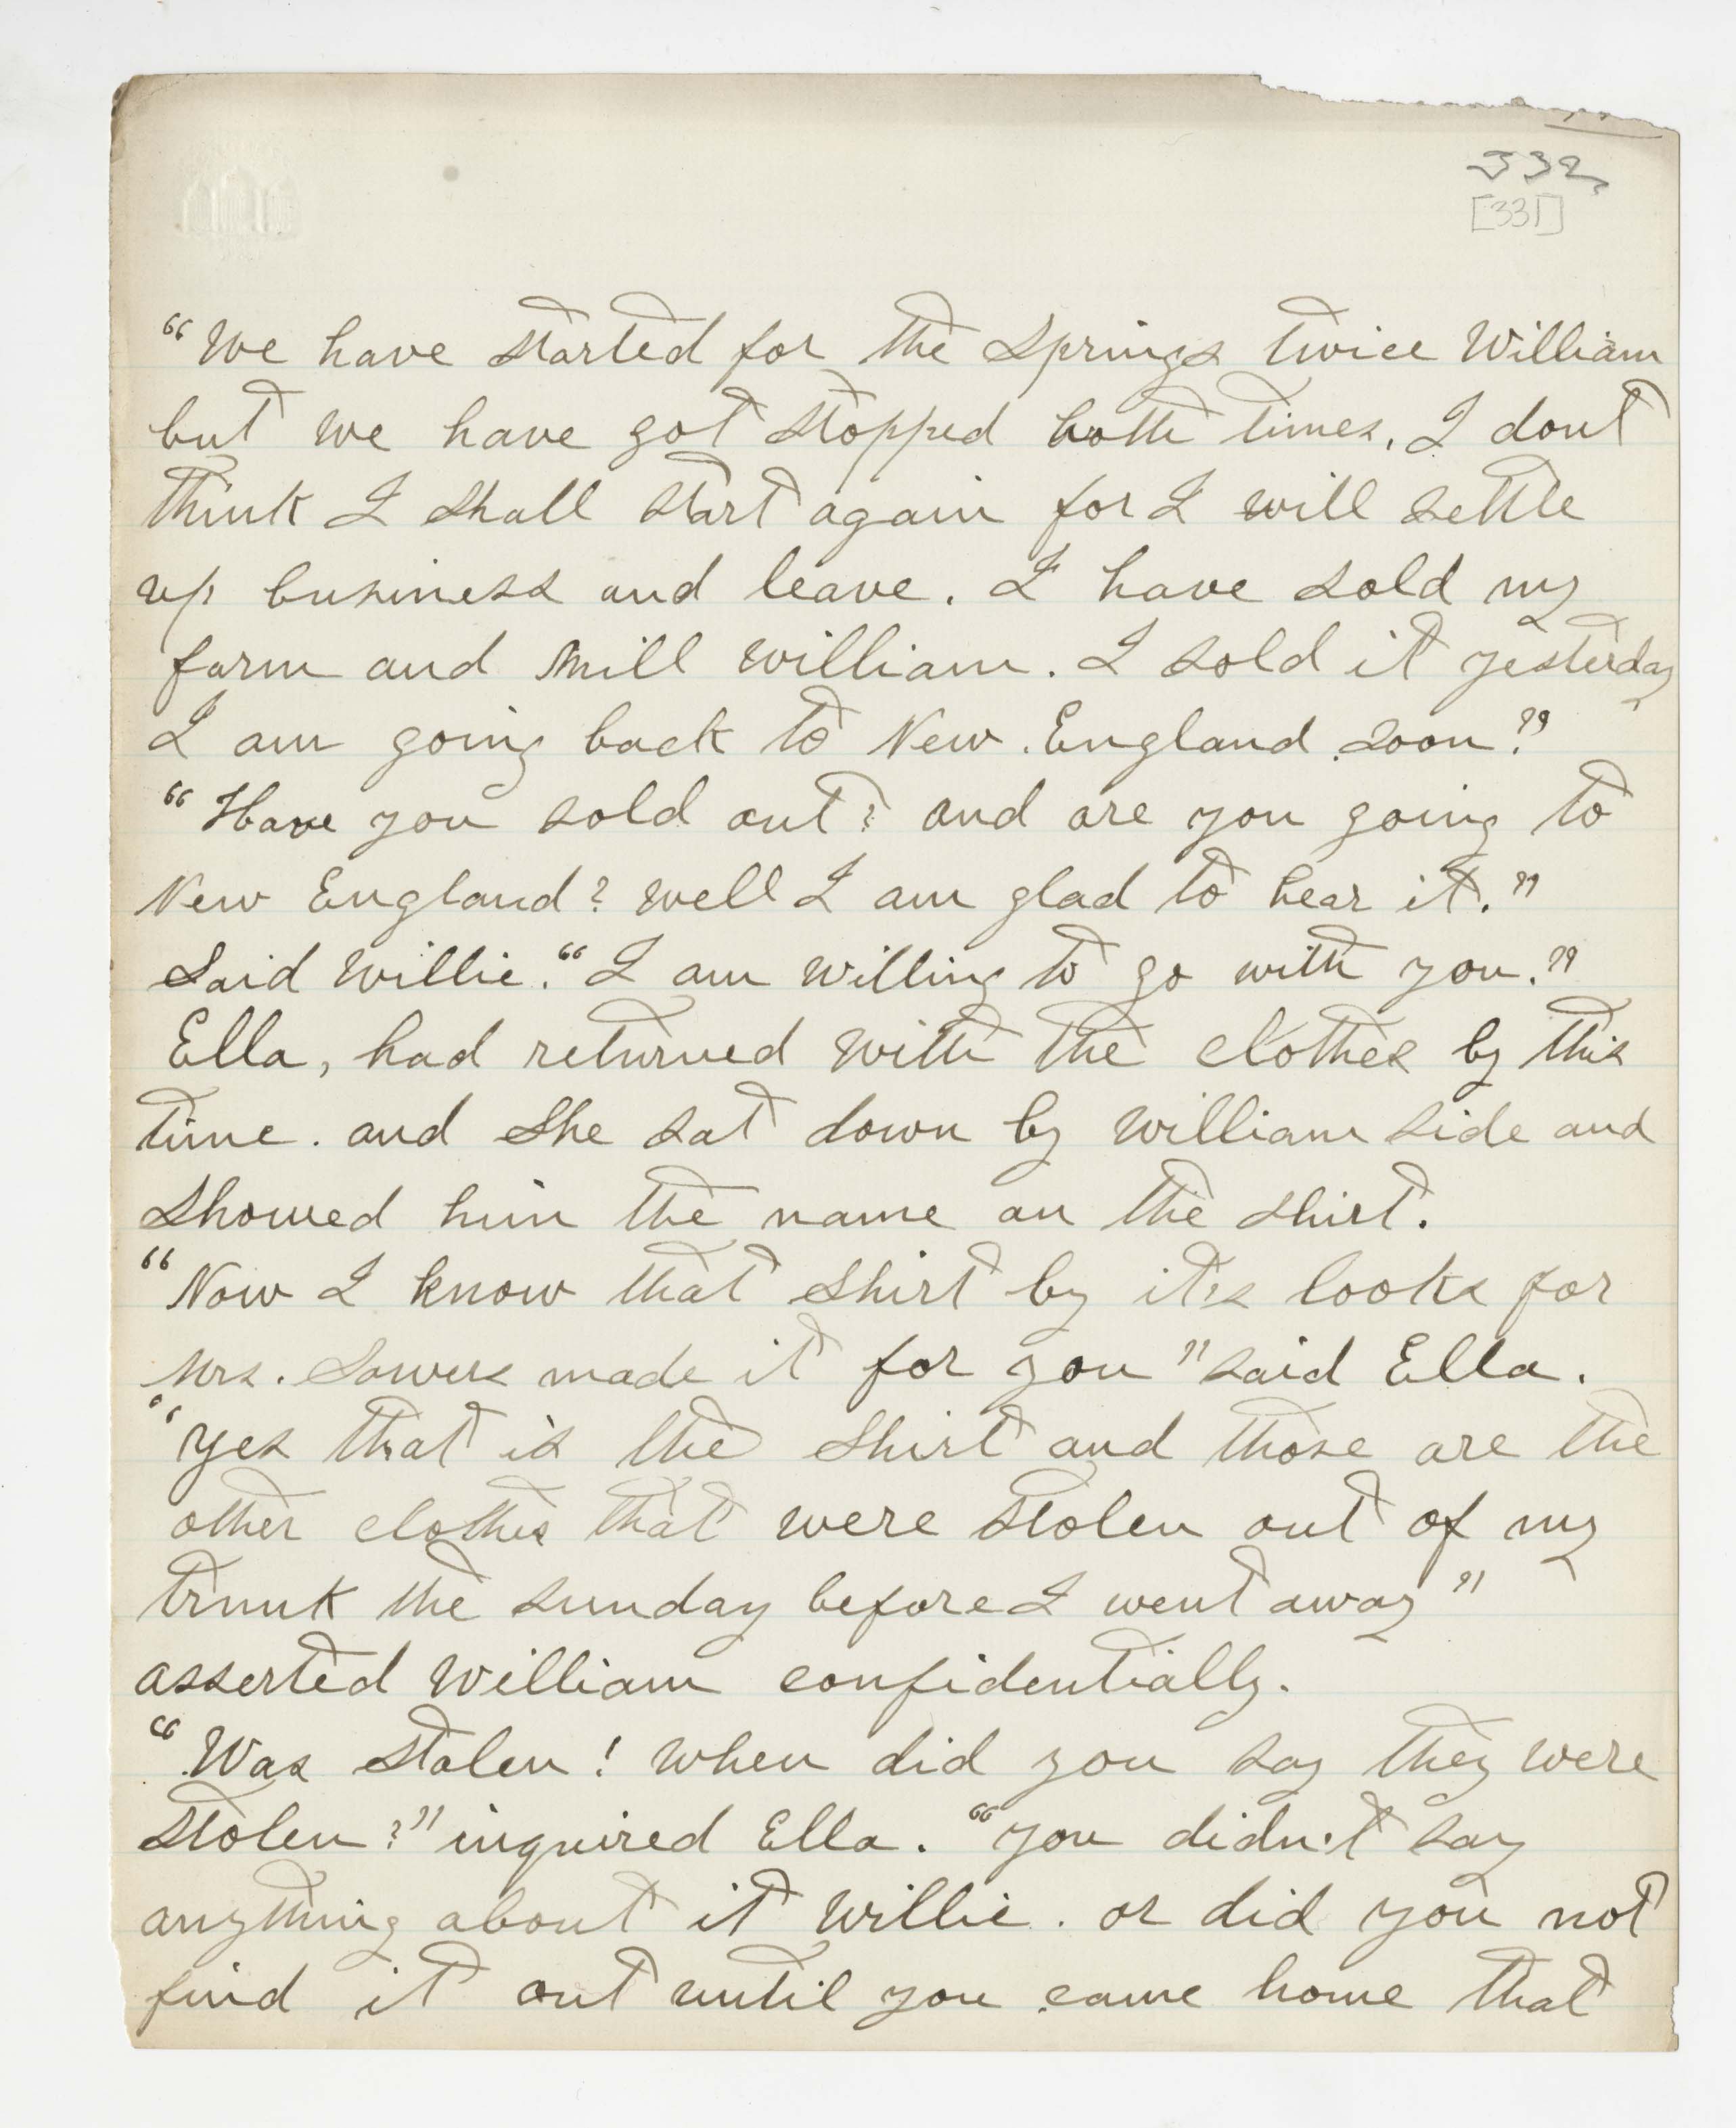 332
[331]
"We have started for the Springs twice William
but we have got stopped both times. I dont
think I shall start again for I will settle
up business and leave. I have sold my
farm and Mill William. I sold it yesterday
I am going back to New England soon?"
"Have you sold out? and are you going to
New England? well I am glad to hear it."
Said Willie. "I am willing to go with you."
Ella, had returned with the clothes by this
time. and She sat down by William side and
Showed him the name on the shirt.
"Now I know that Shirt by it's looks for
Mrs. Sowers made it for you" said Ella.
"yes that is the Shirt and those are the
other clothes that were stolen out of my
trunk the sunday before I went away"
asserted William confidentially.
"Was stolen! when did you say they were
stolen?" inquired Ella. "you didn't say
anything about it Willie. or did you not
find it out until you came home that